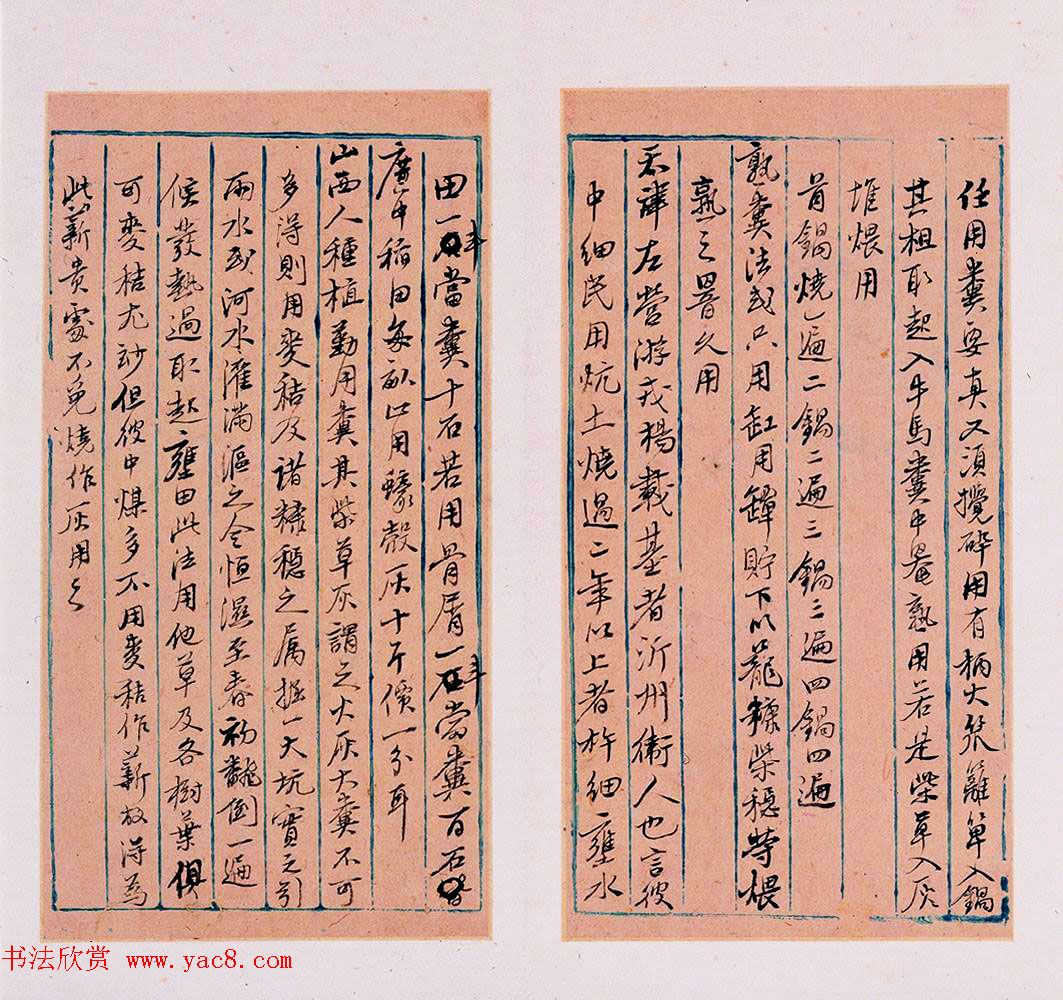 任用糞要真又須攪碎用有柄大笊籬箄入鍋
其粗取起入牛馬糞中罨熟用若是柴草入灰
堆煨用
首鍋燒一遍二鍋二遍三鍋三遍四鍋四遍
熟糞法或只用缸用罈貯下以礱糠柴穩等煨
熟之畧久用
天津左營游戎楊載基者沂州衛人也言彼
中細民用炕土燒過二年以上者杵細壅水
田一斗當糞十石若用骨屑一斗當糞百石
廣中稻田每畝止用蠔殼灰十斤價一分耳
山西人種植勤用糞其柴草灰謂之火灰大糞不可
多得則用麥秸及諸糠穩之属掘一大坑實之引
雨水或河水灌滿漚之令恒濕至春初翻倒一遍
候發熱過取起壅田此法用他草及各樹葉俱
可麥秸尤妙但彼中煤多不用麥秸作薪故得為
此薪貴處不免燒作灰用之
书法欣赏 www.yac8.com